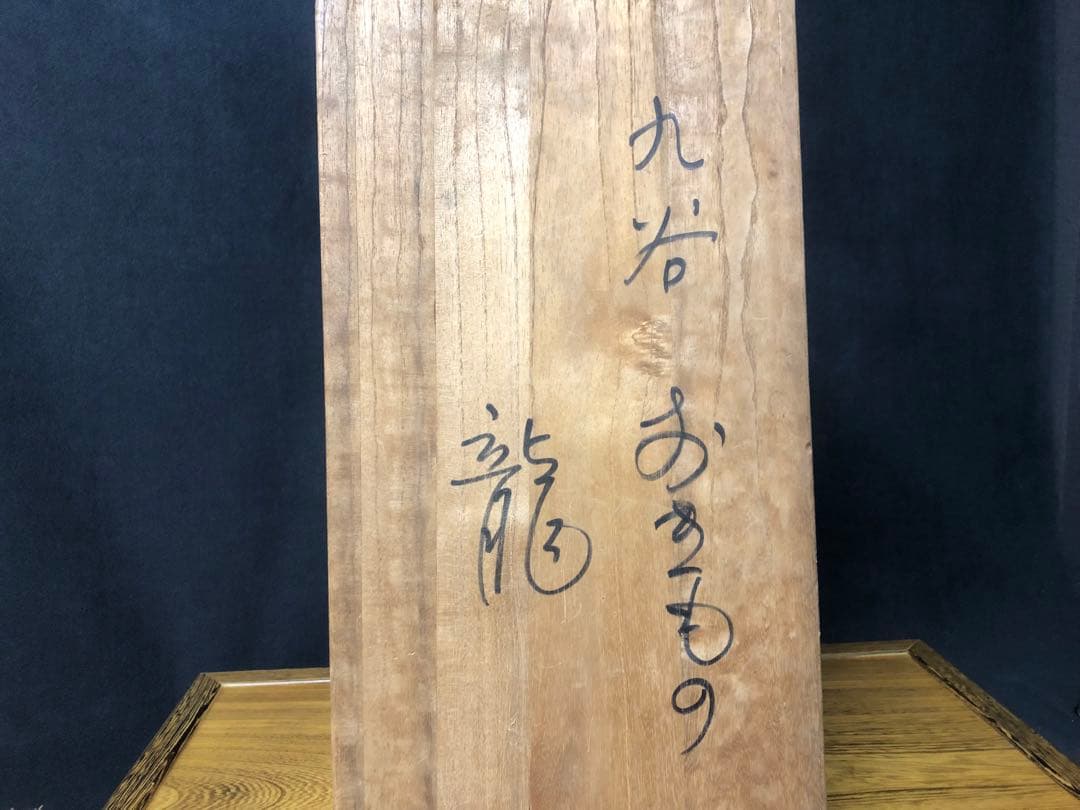 九谷 おきもの
龍